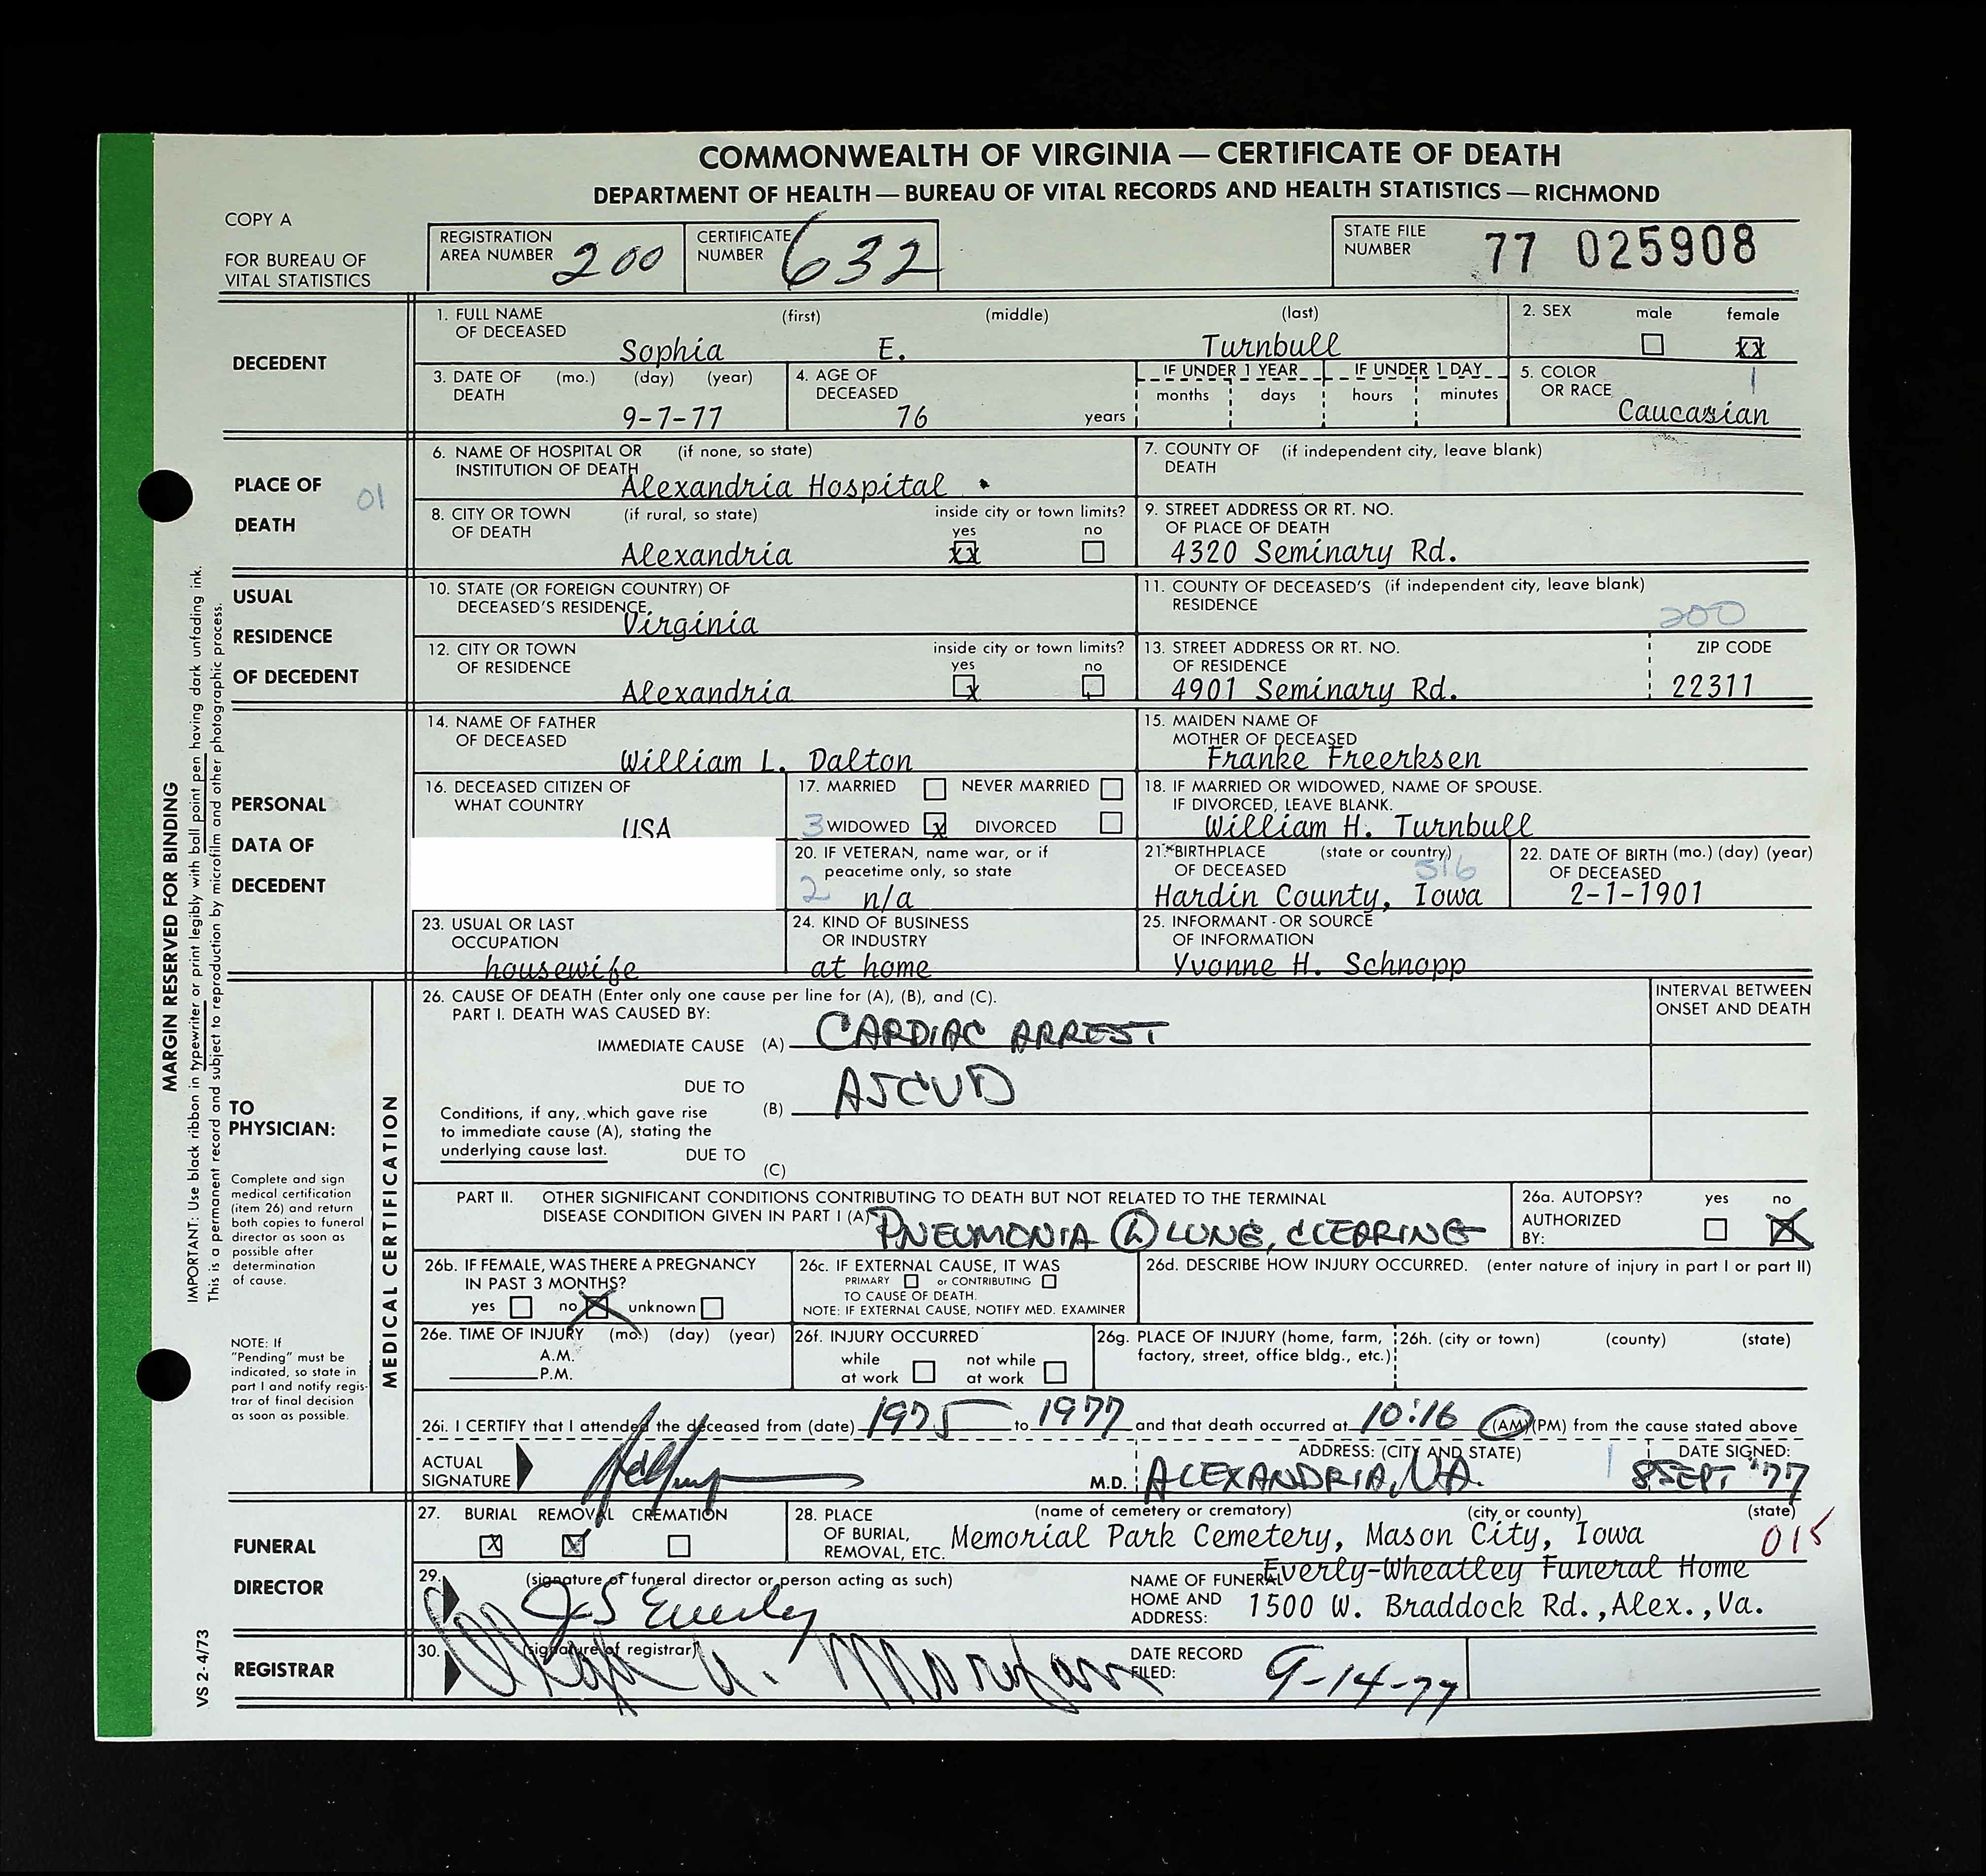 COMMONWEALTH OF VIRGINIA — CERTIFICATE OF DEATH
DEPARTMENT OF HEALTH — BUREAU OF VITAL RECORDS AND HEALTH STATISTICS — RICHMOND
COPY A
FOR BUREAU OF
VITAL STATISTICS
REGISTRATION
AREA NUMBER 200
CERTIFICATE
NUMBER 632
STATE FILE
NUMBER 77 025908
DECEDENT
1. FULL NAME (first) (middle) (last)
OF DECEASED
Sophia E. Turnbull
2. SEX male female
xx
3. DATE OF (mo.) (day) (year)
DEATH
9-7-77
4. AGE OF
DECEASED
76 years
IF UNDER 1 YEAR IF UNDER 1 DAY
months days hours minutes
5. COLOR
OR RACE 1
Caucasian
PLACE OF
DEATH
01
6. NAME OF HOSPITAL OR (if none, so state)
INSTITUTION OF DEATH
Alexandria Hospital
7. COUNTY OF (if independent city, leave blank)
DEATH
8. CITY OR TOWN (if rural, so state) inside city or town limits?
OF DEATH yes no
Alexandria xx
9. STREET ADDRESS OR RT. NO.
OF PLACE OF DEATH
4320 Seminary Rd.
USUAL
RESIDENCE
OF DECEDENT
10. STATE (OR FOREIGN COUNTRY) OF
DECEASED'S RESIDENCE
Virginia
11. COUNTY OF DECEASED'S (if independent city, leave blank)
RESIDENCE
200
12. CITY OR TOWN inside city or town limits?
OF RESIDENCE yes no
Alexandria x
13. STREET ADDRESS OR RT. NO. ZIP CODE
OF RESIDENCE
4901 Seminary Rd. 22311
PERSONAL
DATA OF
DECEDENT
14. NAME OF FATHER
OF DECEASED
William L. Dalton
15. MAIDEN NAME OF
MOTHER OF DECEASED
Franke Freerksen
16. DECEASED CITIZEN OF
WHAT COUNTRY
USA
17. MARRIED NEVER MARRIED
3 WIDOWED x DIVORCED
18. IF MARRIED OR WIDOWED, NAME OF SPOUSE.
IF DIVORCED, LEAVE BLANK.
William H. Turnbull
20. IF VETERAN, name war, or if
peacetime only, so state
2 n/a
21.* BIRTHPLACE (state or country)
OF DECEASED 516
Hardin County, Iowa
22. DATE OF BIRTH (mo.) (day) (year)
OF DECEASED
2-1-1901
23. USUAL OR LAST
OCCUPATION
housewife
24. KIND OF BUSINESS
OR INDUSTRY
at home
25. INFORMANT - OR SOURCE
OF INFORMATION
Yvonne H. Schnopp
TO
PHYSICIAN:
Complete and sign
medical certification
(item 26) and return
both copies to funeral
director as soon as
possible after
determination
of cause.
NOTE: If
"Pending" must be
indicated, so state in
part I and notify regis-
trar of final decision
as soon as possible.
MEDICAL CERTIFICATION
26. CAUSE OF DEATH (Enter only one cause per line for (A), (B), and (C).
PART I. DEATH WAS CAUSED BY:
INTERVAL BETWEEN
ONSET AND DEATH
IMMEDIATE CAUSE (A) CARDIAC ARREST
DUE TO
(B) ASCVD
Conditions, if any, which gave rise
to immediate cause (A), stating the
underlying cause last. DUE TO
(C)
PART II. OTHER SIGNIFICANT CONDITIONS CONTRIBUTING TO DEATH BUT NOT RELATED TO THE TERMINAL
DISEASE CONDITION GIVEN IN PART I (A)
PNEUMONIA L LUNG, CLEARING
26a. AUTOPSY? yes no
AUTHORIZED
BY:
26b. IF FEMALE, WAS THERE A PREGNANCY
IN PAST 3 MONTHS?
yes no unknown
26c. IF EXTERNAL CAUSE, IT WAS
PRIMARY or CONTRIBUTING
TO CAUSE OF DEATH.
NOTE: IF EXTERNAL CAUSE, NOTIFY MED. EXAMINER
26d. DESCRIBE HOW INJURY OCCURRED. (enter nature of injury in part I or part II)
26e. TIME OF INJURY (mo.) (day) (year)
A.M.
P.M.
26f. INJURY OCCURRED
while not while
at work at work
26g. PLACE OF INJURY (home, farm,
factory, street, office bldg., etc.)
26h. (city or town) (county) (state)
26i. I CERTIFY that I attended the deceased from (date) 1975 to 1977 and that death occurred at 10:16 (AM)(PM) from the cause stated above
ACTUAL
SIGNATURE M.D.
ADDRESS: (CITY AND STATE)
ALEXANDRIA, VA.
1
DATE SIGNED:
8 SEPT '77
FUNERAL
DIRECTOR
27. BURIAL REMOVAL CREMATION
X X
28. PLACE (name of cemetery or crematory) (city or county) (state)
OF BURIAL,
REMOVAL, ETC. Memorial Park Cemetery, Mason City, Iowa 015
29. (signature of funeral director or person acting as such)
J S Everly
NAME OF FUNERAL Everly-Wheatley Funeral Home
HOME AND
ADDRESS: 1500 W. Braddock Rd., Alex., Va.
REGISTRAR
30. (signature of registrar)
DATE RECORD
FILED: 9-14-77
MARGIN RESERVED FOR BINDING
IMPORTANT: Use black ribbon in typewriter or print legibly with ball point pen having dark unfading ink.
This is a permanent record and subject to reproduction by microfilm and other photographic process.
VS 2-4/73